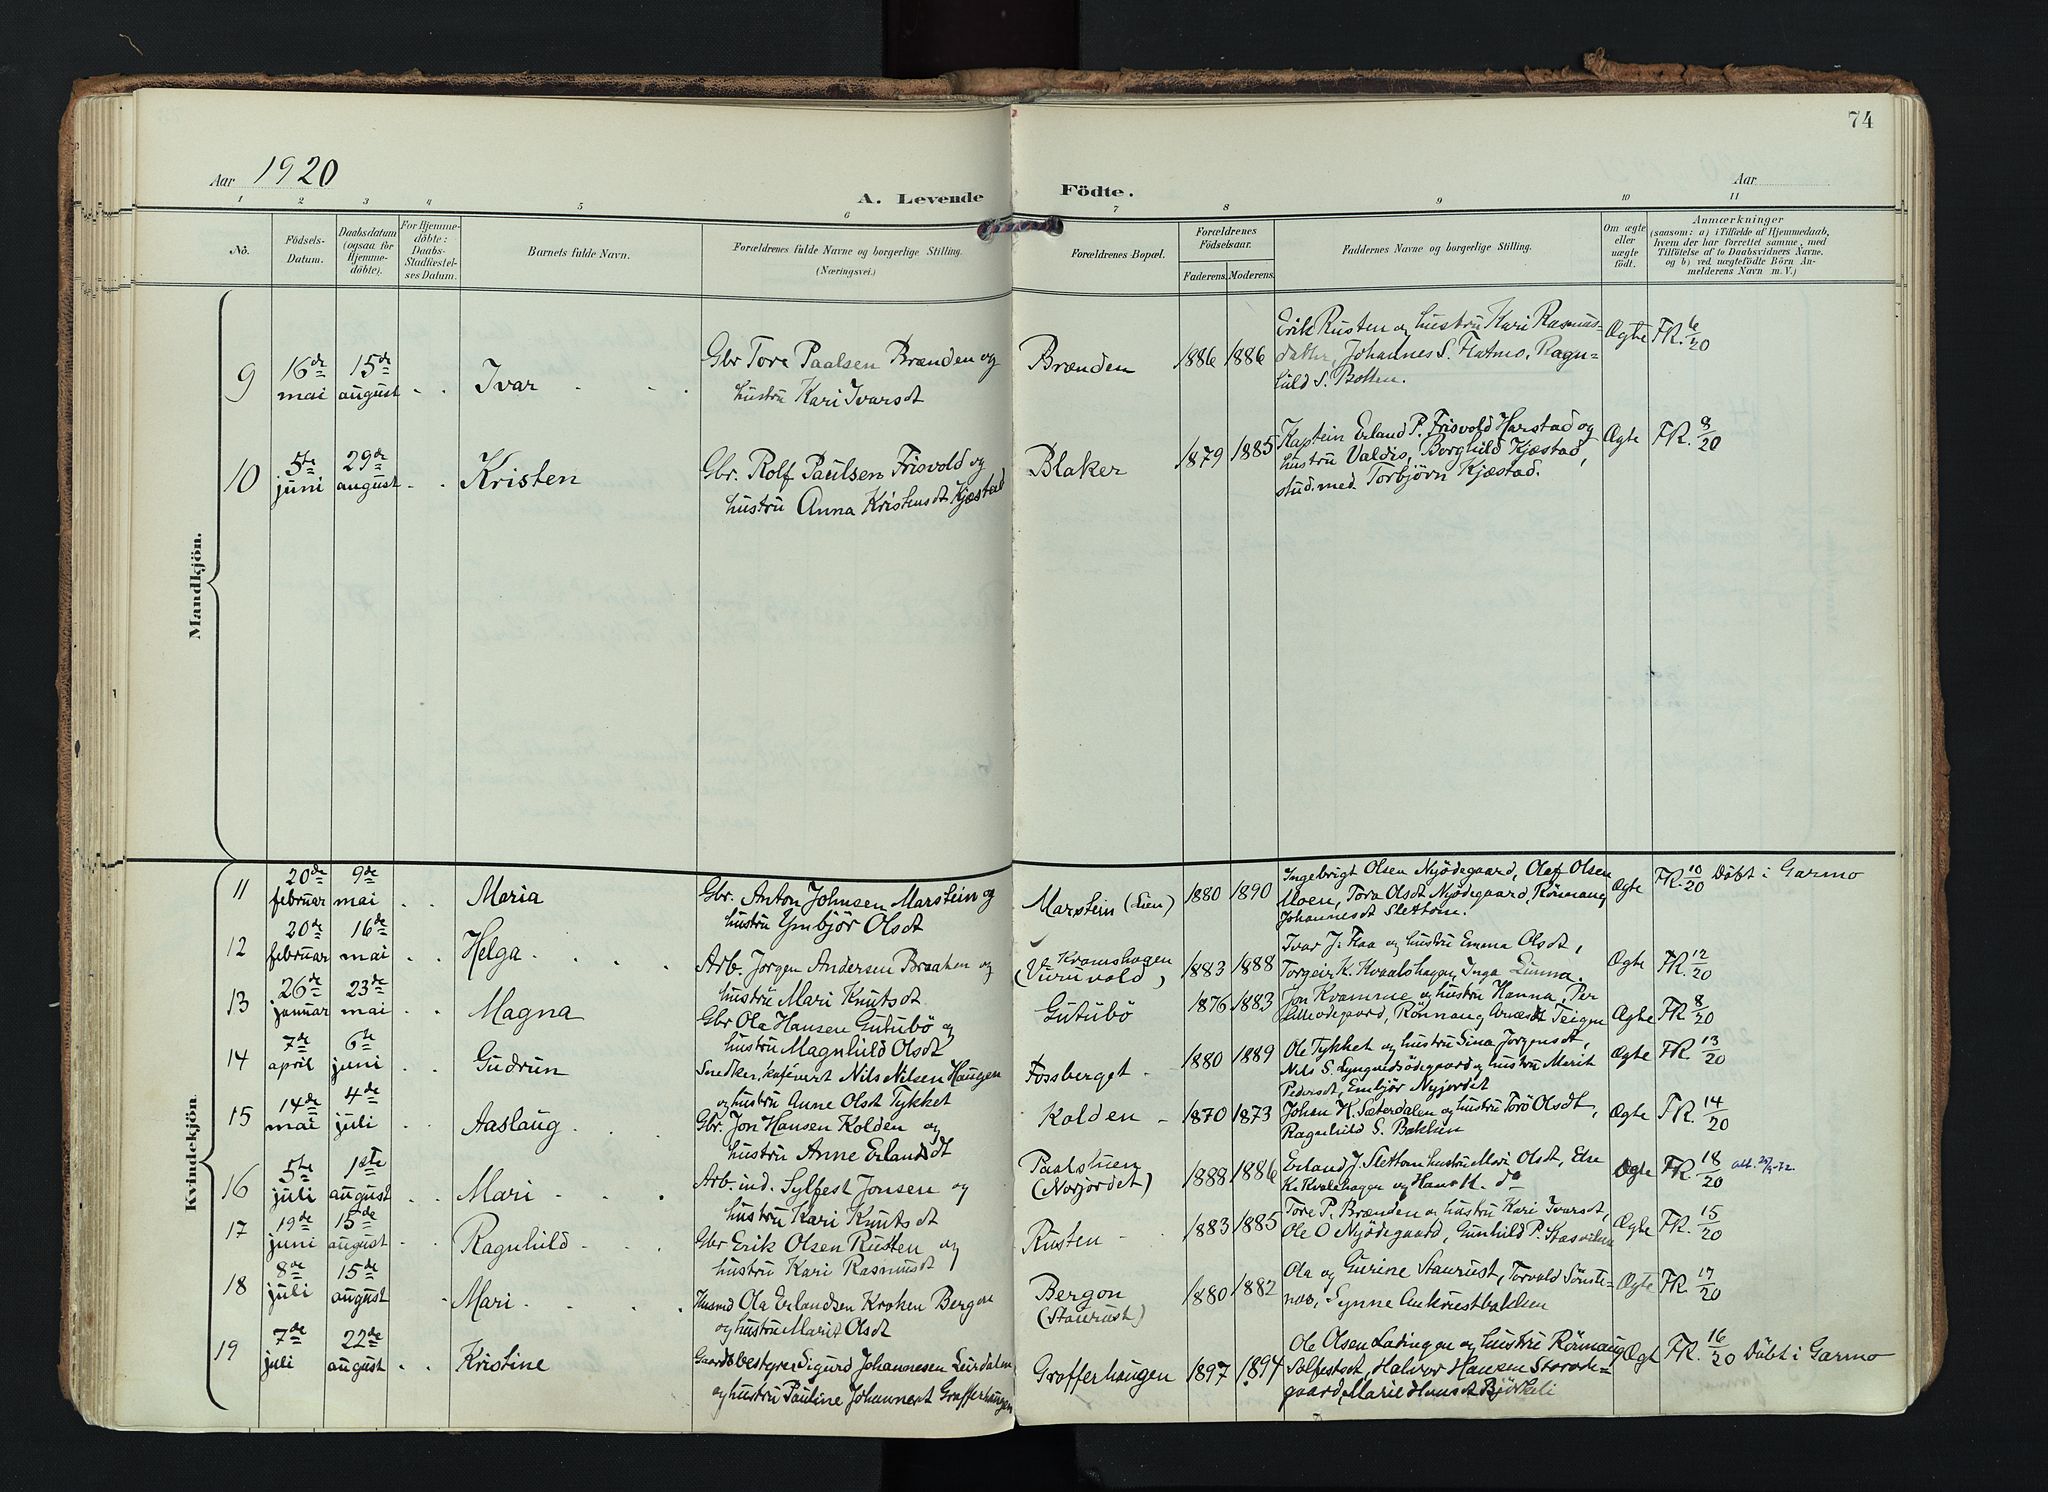 74
Aar 1920
A. Levende Födte.
Aar
1 2 3 4 5 6 7 8 9 10 11
No.
Födsels-Datum.
Daabsdatum (ogsaa for Hjemmedöbte).
For Hjemmedöbte: Daabs-Stadfæstelses Datum.
Barnets fulde Navn.
Forældrenes fulde Navne og borgerlige Stilling.
(Næringsvei.)
Forældrenes Bopæl.
Forældrenes Födselsaar.
Faderens. Moderens.
Faddernes Navne og borgerlige Stilling.
Om ægte eller uægte födt.
Anmærkninger
(saasom: a) i Tilfælde af Hjemmedaab,
hvem der har forrettet samme, med
Tilföielse af to Daabsvidners Navne,
og b) ved uægtefödte Börn An-
melderens Navn m. V.)
Mandkjön.
9 16de mai 15de august Ivar Gbr Tore Paalsen Brænden og
hustru Kari Ivarsdt
Brænden 1886 1886
Erik Rusten og hustru Kari Rasmus-
datter, Johannes S. Flatmo, Ragn-
hild S. Botten.
Ægte FR. 6/20
10 5te juni 29de august Kristen Gbr. Rolf Paulsen Frisvold og
hustru Anna Kristensdt Kjæstad
Blaker 1879 1885
Kaptein Erland P. Frisvold Harstad og
hustru Valdis, Borghild Kjæstad,
stud. med Torbjörn Kjæstad.
Ægte FR. 8/20
Kvindekjön.
11 20de februar 9de mai Maria Gbr. Anton Johnsen Marstein og
hustru Ymbjör Olsdt
Marstein (Lien) 1880 1890
Ingebrigt Olsen Nyödegaard, Olef Olsen
Moen, Tora Olsdt Nyödegaard, Rönnaug
Johannesdt Slettom.
Ægte FR. 10/20 Döbt i Garmo
12 20de februar 16de mai Helga Arb. Jörgen Andersen Braaten og
hustru Mari Knutsdt
Kramshagen
(Vuruvold) 1883 1888
Ivar J. Flaa og hustru Emma Olsdt,
Torgeir K. Kvaalshagen, Inga Linna.
Ægte FR. 12/20
13 26de januar 23de mai Magna Gbr Ola Hansen Gutubö og
hustru Magnhild Olsdt
Gutubö 1876 1883
Jon Kvamme og hustru Hanna, Per
Lilleödegaard, Rönnaug Arnesdt Teigen
Ægte FR. 8/20
14 7de april 6te juni Gudrun Snedker, kafévert Nils Nilsen Haugen
og hustru Anne Olsdt Tykket
Fossberget 1880 1889
Ole Tykket og hustru Sina Jorgensdt,
Nils S. Lyngvedsödegaard og hustru Marit
Pedersdt, Embjör Nyjordet
Ægte FR. 13/20
15 14de mai 4de juli Aaslaug Gbr. Jon Hansen Kolden og
hustru Anne Erlandsdt
Kolden 1870 1873
Johan H. Sæterdalen og hustru Torö Olsdt,
Ragnhild S. Bakken
Ægte FR. 14/20
16 5te juli 1ste august Mari Arb. ind. Sylfest Jonsen og
hustru Kari Knutsdt
Paalstuen
(Norjordet) 1888 1886
Erland J. Slettom hustru Mari Olsdt, Else
K. Kvalehagen og Hans H. do
Ægte FR. 18/20
17 19de juni 15de august Ragnhild Gbr Erik Olsen Rusten og
hustru Kari Rasmusdt
Rusten 1883 1885
Tore P. Brænden og hustru Kari Ivarsdt,
Ole O Nyödegaard, Gunhild P. Stasviken
Ægte FR. 15/20
18 8de juli 15de august Mari Husmd Ola Erlandsen Kroken Bergom
og hustru Marit Olsdt
Bergom
(Staurust) 1880 1882
Ola og Gurine Staurust, Torvald Sönste-
nes, Synne Aukrustbakken
Ægte FR. 17/20
19 7de juli 22de august Kristine Gaardsbestyrer Sigurd Johannesen Leirdalen
og hustru Pauline Johannesdt Grafferhaugen
Grafferhaugen 1897 1894
Ole Olsen Ladinggen og hustru Rönnaug
Solfestsdt, Halvor Hansen Storöde-
gaard, Marie Hansdt Björkeli
Ægte FR. 16/20 Döbt i Garmo